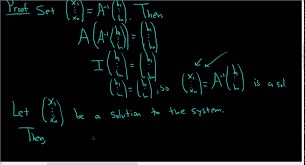 Proof Set (x₁ ⋮ xₙ) = A⁻¹(b₁ ⋮ bₙ). Then
A(A⁻¹(b₁ ⋮ bₙ)) = (b₁ ⋮ bₙ)
I(b₁ ⋮ bₙ) = (b₁ ⋮ bₙ)
(b₁ ⋮ bₙ) = (b₁ ⋮ bₙ), so (x₁ ⋮ xₙ) = A⁻¹(b₁ ⋮ bₙ) is a sol.
Let (x₁ ⋮ xₙ) be a solution to the system.
Then